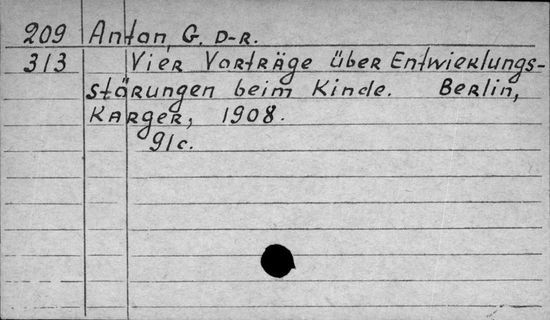 209 Anton, G. D-R.
313 Vier Vorträge über Entwicklungs-
störungen beim Kinde. Berlin,
Karger, 1908.
91c.